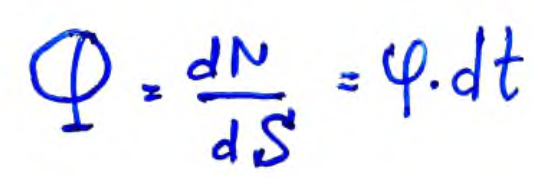 Φ = dN/dS = φ · dt